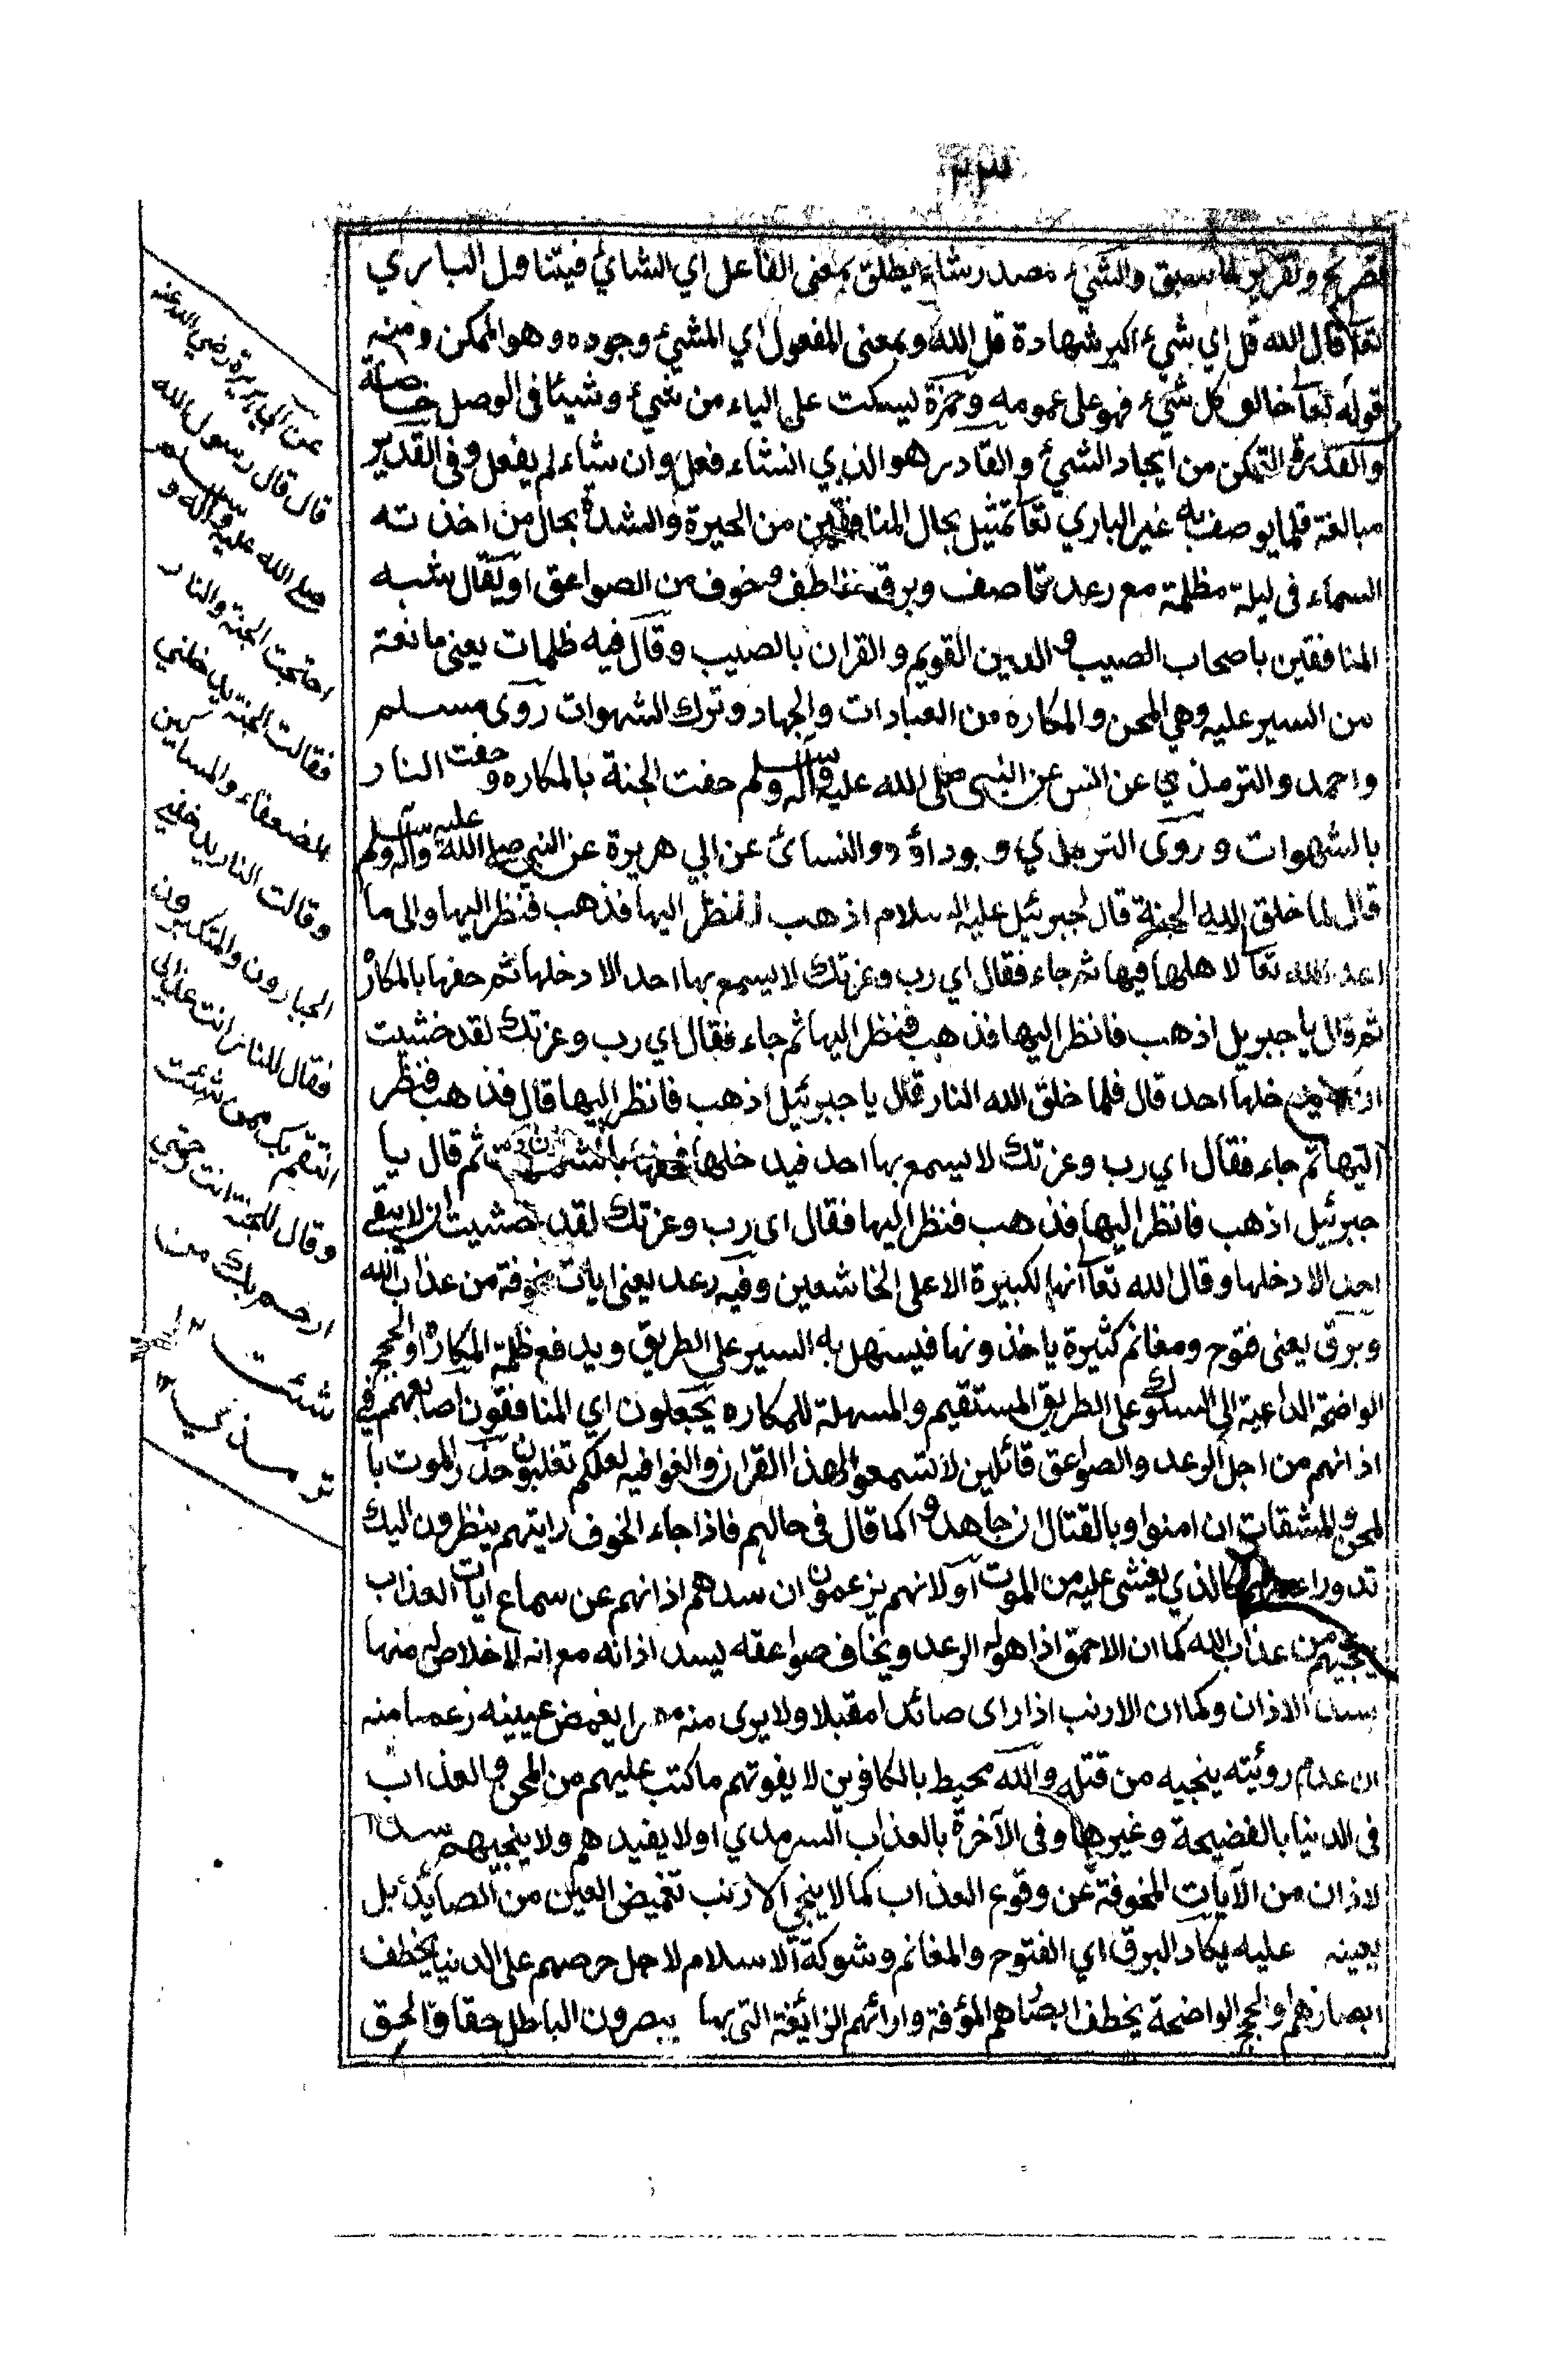 ٣٣
تصريح وتقرير لما سبق والشئ مصدر شاء يطلق بمعنى الفاعل اي الشائ فيتناول الباري
تعا قال الله قل اي شئ اكبر شهادة قل الله وبمعنى المفعول اي المشئ وجوده وهو الممكن ومنه
قوله تعا خالق كل شئ فهو على عمومه وحمزة يسكت على الياء من شئ وشيئا فى الوصل خاصة
والقدرة التمكن من ايجاد الشئ والقادر هو الذي انشاء فعل وان شاء لم يفعل وفى القدير
مبالغة قلما يوصف به غير الباري تعا تمثيل بحال المنافقين من الحيرة والشدة بحال من اخذته
السماء فى ليلة مظلمة مع رعد قاصف وبرق خاطف وخوف من الصواعق او يقال شبه
المنافقين باصحاب الصيب والدين القويم والقران بالصيب وقال فيه ظلمات يعنى مانعة
من السير عليه وهي المحن والمكاره من العبادات والجهاد وترك الشهوات روى مسلم
واحمد والترمذي عن انس عن النبى صلى الله عليه وآله وسلم حفت الجنة بالمكاره وحفت النار
بالشهوات وروى الترمذي وبوداؤد والنسائ عن ابي هريرة عن النبي صلى الله عليه وآله وسلم
قال لما خلق الله الجنة قال لجبرئيل عليه السلام اذهب انظر اليها فذهب فنظر اليها والى ما
اعد الله تعا لاهلها فيها ثم جاء فقال اي رب وعزتك لا يسمع بها احد الا دخلها ثم حفها بالمكاره
ثم قال يا جبريل اذهب فانظر اليها فذهب فنظر اليها ثم جاء فقال اي رب وعزتك لقد خشيت
ان لا يدخلها احد قال فلما خلق الله النار قال يا جبرئيل اذهب فانظر اليها قال فذهب فنظر
اليها ثم جاء فقال اي رب وعزتك لا يسمع بها احد فيدخلها فحفها بالشهوات ثم قال يا
جبرئيل اذهب فانظر اليها فذهب فنظر اليها فقال اى رب وعزتك لقد خشيت ان لا يبقى
احد الا دخلها وقال الله تعا انها لكبيرة الا على الخاشعين وفيه رعد يعنى ايات مخوفة من عذاب الله
وبرق يعنى فتوح ومغانم كثيرة ياخذونها فيسهل به السير على الطريق ويدفع ظلمة المكاره او الحجج
الواضحة الداعية الى السلوك على الطريق المستقيم والمسهلة للمكاره يجعلون اي المنافقون اصابعهم في
اذانهم من اجل الوعد والصواعق قائلين لا تسمعوا لهذا القران والغوا فيه لعلكم تغلبون حذر الموت با
لمحن والمشقات ان امنوا وبالقتال ان جاهدوا كما قال فى حالهم فاذا جاء الخوف رايتهم ينظرون اليك
تدور اعينهم كالذي يغشى عليه من الموت او لانهم يزعمون ان سدهم اذانهم عن سماع ايات العذاب
ينجيهم من عذاب الله كما ان الاحمق اذا هوله الرعد ويخاف صواعقه يسد اذانه مع انه لا خلاص له منها
بسد الاذان وكما ان الارنب اذا راى صائدا مقبلا ولا يرى منه مفرا يغمض عيينه زعما منه
ان عدم رويته ينجيه من قتله والله محيط بالكافرين لا يفوتهم ما كتب عليهم من المحن والعذاب
فى الدنيا بالفضيحة وغيرها وفى الآخرة بالعذاب السرمدي او لا يفيدهم ولا ينجيهم سد ا
لاذان من الآيات المخوفة عن وقوع العذاب كما لا ينجي الارنب تغميض العين من الصائد بل
يعينه عليه يكاد البرق اي الفتوح والمغانم وشوكة الاسلام لاجل حرصهم على الدنيا يخطف
ابصارهم او الحجج الواضحة يخطف ابصارهم المؤفة وارائهم الزائغة التى بها يبصرون الباطل حقا والحق
عن ابي هريرة رضي الله عنه
قال قال رسول الله
صلى الله عليه وآله وسلم
احتجت الجنة والنار
فقالت الجنة يدخلني
الضعفاء والمساكين
وقالت النار يدخلني
الجبارون والمتكبرون
فقال للنار انت عذابي
انتقم بك ممن شئت
وقال للجنة انت رحمتي
ارحم بك من
شئت
ترمذي